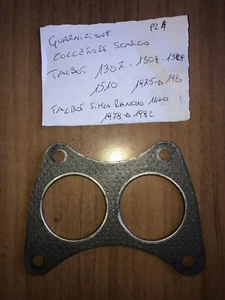 GUARNIZIONE PZ 1
COLLETTORE SCARICO
TALBOT 1307 - 1508 - 1509
1510 1975 → 1980
TALBOT SIMCA RANCHO 1400
1978 → 1982